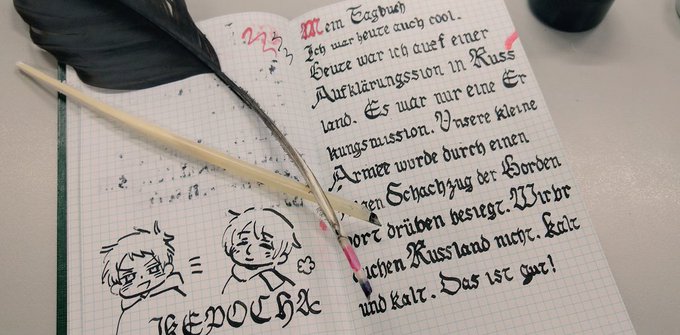 Mein Tagbuch
Ich war heute auch cool.
Heute war ich auef einer
Aufklärungssion in Russ
land. Es war nur eine Er
kungsmission. Unsere kleine
Armee wurde durch einen
gen Schachzug der Horden
ort drüben besiegt. Wir br
uchen Russland nicht. Kalt
und kalt. Das ist gut!
=